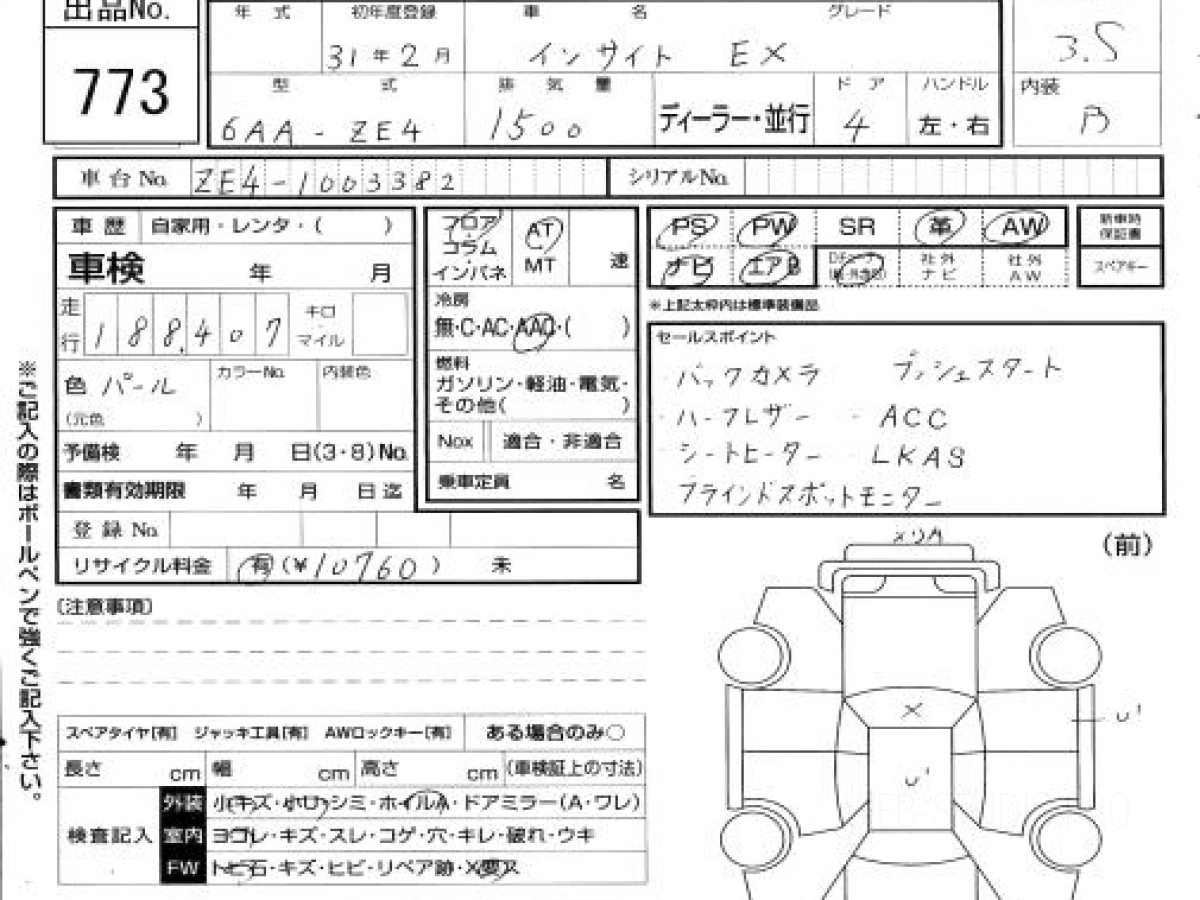 出品No.
773
年 式 初年度登録 車 名 グレード
31年2月 インサイト EX 3.5
型 式 排 気 量 ド ア ハンドル 内装
6AA - ZE4 1500 ディーラー・並行 4 左・右 B
車台No. ZE4-1003382 シリアルNo.
車歴 自家用・レンタ・( )
車検 年 月
走行 188,407 キロ・マイル
色 パール カラーNo. 内装色
(元色 )
予備検 年 月 日(3・8)No.
書類有効期限 年 月 日迄
登録No.
リサイクル料金 有(¥10760) 未
フロア
コラム
インパネ
AT
MT
速
冷房
無・C・AC・AAC・( )
燃料
ガソリン・軽油・電気・
その他( )
Nox 適合・非適合
乗車定員 名
PS PW SR 革 AW
ナビ エアB 社外ナビ 社外AW
新車時保証書
スペアキー
※上記太枠内は標準装備品
セールスポイント
バックカメラ プッシュスタート
ハーフレザー ACC
シートヒーター LKAS
ブラインドスポットモニター
※ご記入の際はボールペンで強くご記入下さい。
(注意事項)
スペアタイヤ[有] ジャッキ工具[有] AWロックキー[有] ある場合のみ○
長さ cm 幅 cm 高さ cm (車検証上の寸法)
検査記入
外装 小キズ・小凹・シミ・ホイルA・ドアミラー(A・ワレ)
室内 ヨゴレ・キズ・スレ・コゲ・穴・キレ・破れ・ウキ
FW トビ石・キズ・ヒビ・リペア跡・X要又
(前)
X
U'
U'